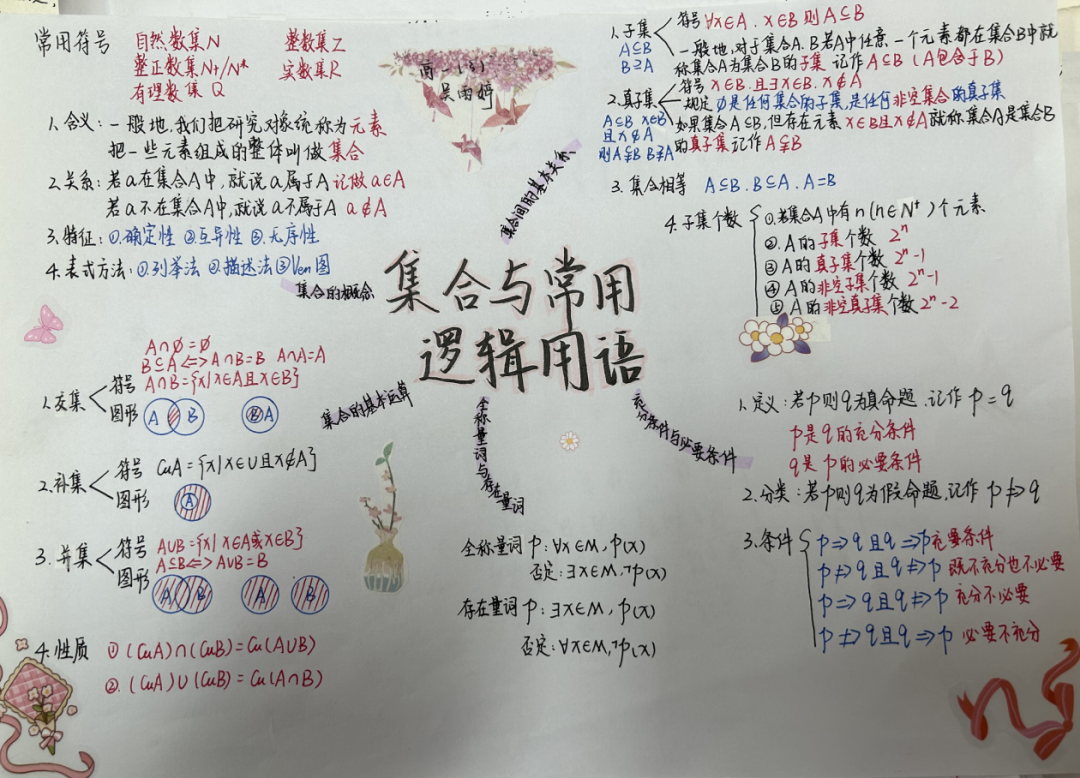 常用符号
自然数集N 整数集Z
整正数集N+/N* 实数集R
有理数集 Q
1.含义：一般地,我们把研究对象统称为元素
把一些元素组成的整体叫做集合
2.关系：若a在集合A中，就说a属于A 记做a∈A
若a不在集合A中,就说a不属于A a∉A
3.特征：①.确定性 ②互异性 ③.无序性
4.表式方法：①.列举法 ②.描述法③Ven图
集合的概念
吴雨婷
集合间的基本关系
1.子集
A⊆B
B⊇A
符号 ∀x∈A . x∈B 则A⊆B
一般地,对于集合A.B若A中任意一个元素都在集合B中就
称集合A为集合B的子集 记作A⊆B（A包含于B）
2.真子集
A⊆B x∈B
且x∉A
则A⫋B B⫌A
符号 x∈B.且∃x∈B. x∉A
规定 ∅是任何集合的子集,是任何非空集合的真子集
如果集合A⊆B,但存在元素x∈B且x∉A就称集合A是集合B
的真子集记作A⫋B
3. 集合相等 A⊆B . B⊆A . A=B
4.子集个数
①.若集合A中有n(n∈N⁺)个元素
②.A的子集个数 2ⁿ
③A的真子集个数 2ⁿ-1
④A的非空子集个数 2ⁿ-1
⑤A的非空真子集个数2ⁿ-2
集合与常用
逻辑用语
集合的基本运算
A∩∅=∅
B⊆A<=>A∩B=B A∩A=A
1.交集
符号 A∩B={x|x∈A且x∈B}
图形 A B B A
2.补集
符号 CuA={x|x∈U且x∉A}
图形 A
3.并集
符号 A∪B={x|x∈A或x∈B}
A⊆B<=>A∪B=B
图形 A B A B
4.性质 ①(CuA)∩(CuB)=Cu(A∪B)
②.(CuA)∪(CuB)=Cu(A∩B)
全称量词与存在量词
全称量词 p：∀x∈M,p(x)
否定：∃x∈M,¬p(x)
存在量词 p：∃x∈M,p(x)
否定：∀x∈M,¬p(x)
充分条件与必要条件
1.定义：若p则q为真命题.记作 p=q
p是q的充分条件
q是p的必要条件
2.分类：若p则q为假命题,记作 p≠>q
3.条件
p=>q且q=>p充要条件
p≠>q且q≠>p 既不充分也不必要
p=>q且q≠>p 充分不必要
p≠>q且q=>p 必要不充分